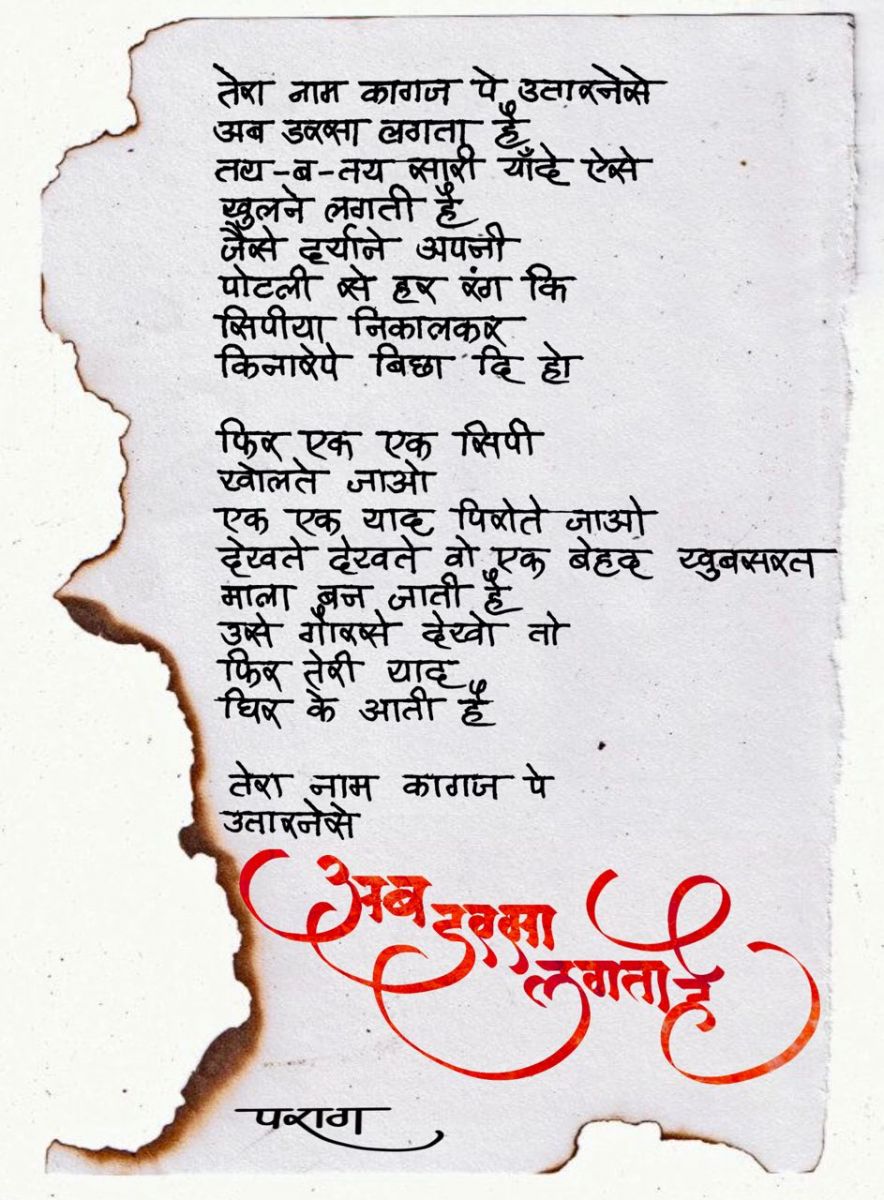 तेरा नाम कागज पे उतारनेसे
अब डरसा लगता है
तय-ब-तय सारी याँदे ऐसे
खुलने लगती है
जैसे दर्याने अपनी
पोटली से हर रंग कि
सिपीया निकालकर
किनारेपे बिछा दि हो
फिर एक एक सिपी
खोलते जाओ
एक एक याद पिरोते जाओ
देखते देखते वो एक बेहद खुबसरत
माला बन जाती है
उसे गौरसे देखो तो
फिर तेरी याद
घिर के आती है
तेरा नाम कागज पे
उतारनेसे
अब डरसा
लगता है
पराग